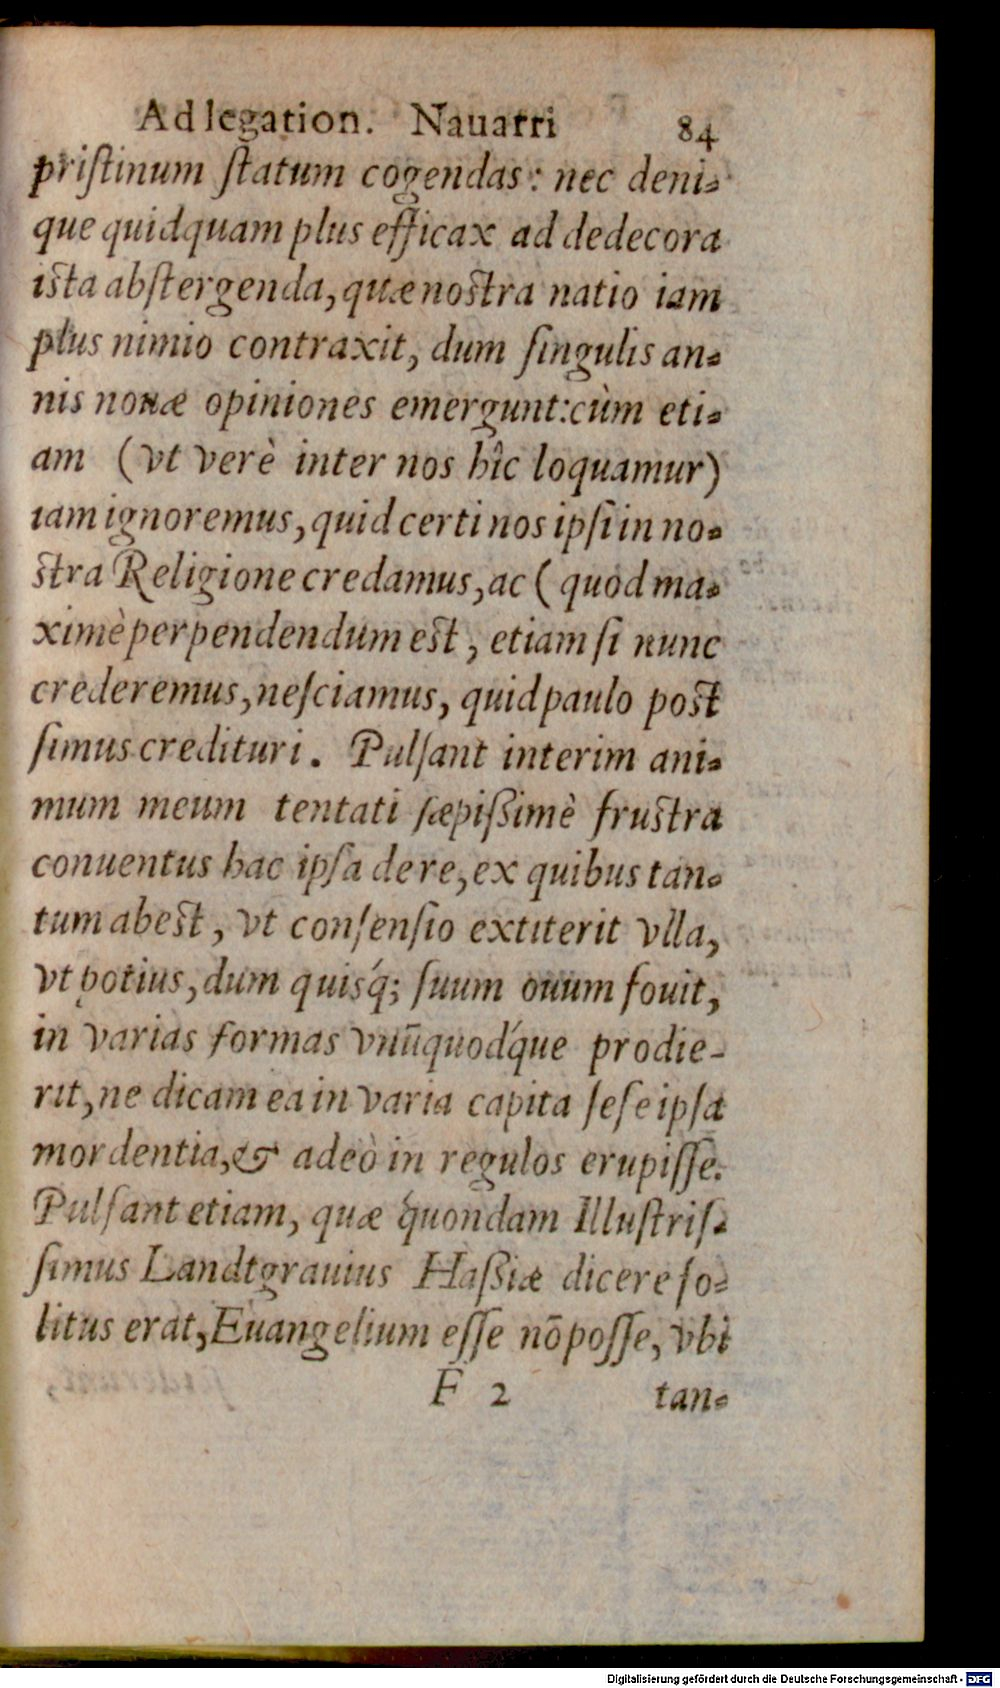 Ad legation. Nauarri 84
priſtinum ſtatum cogendas: nec deni-
que quidquam plus efficax ad dedecora
iſta abſtergenda, quæ noſtra natio iam
plus nimio contraxit, dum ſingulis an-
nis nouæ opiniones emergunt: cùm eti-
am (vt verè inter nos hîc loquamur)
iam ignoremus, quid certi nos ipſi in no-
ſtra Religione credamus, ac (quod ma-
ximè perpendendum eſt, etiam ſi nunc
crederemus, neſciamus, quid paulo poſt
ſimus credituri. Pulſant interim ani-
mum meum tentati ſæpiſsimè fruſtra
conuentus hac ipſa de re, ex quibus tan-
tum abeſt, vt conſenſio extiterit vlla,
vt potius, dum quiſq́; ſuum ouum fouit,
in varias formas vnūquodq́ue prodie-
rit, ne dicam ea in varia capita ſeſe ipſa
mordentia, & adeò in regulos erupiſſe.
Pulſant etiam, quæ q́uondam Illuſtriſ-
ſimus Landtgrauius Haſsiæ dicere ſo-
litus erat, Euangelium eſſe nō poſſe, vbi
F 2 tan-
Digitalisierung gefördert durch die Deutsche Forschungsgemeinschaft - DFG